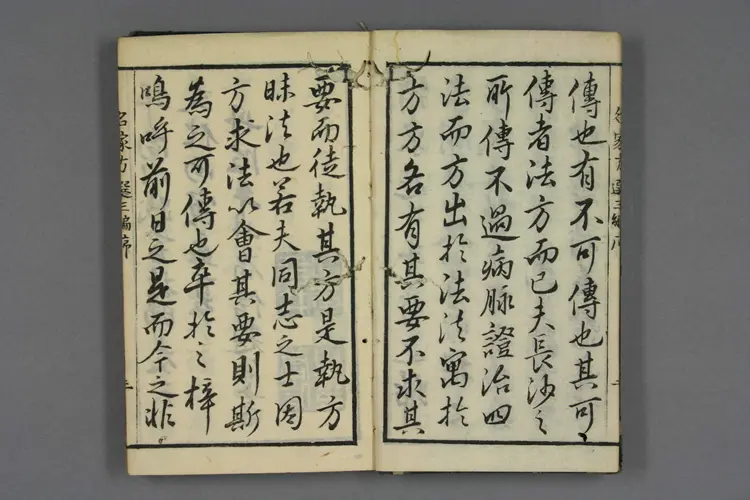 傳也有不可傳也其可〻
傳者法方而已夫長沙之
所傳不過病脉證治四
法而方出於法法寓於
方方各有其要不求其
要而徒執其方是執方
昧法也若夫同志之士因
方求法以會其要則斯
為之可傳也卒於之梓
嗚呼前日之是而今之非
名家方選三編序